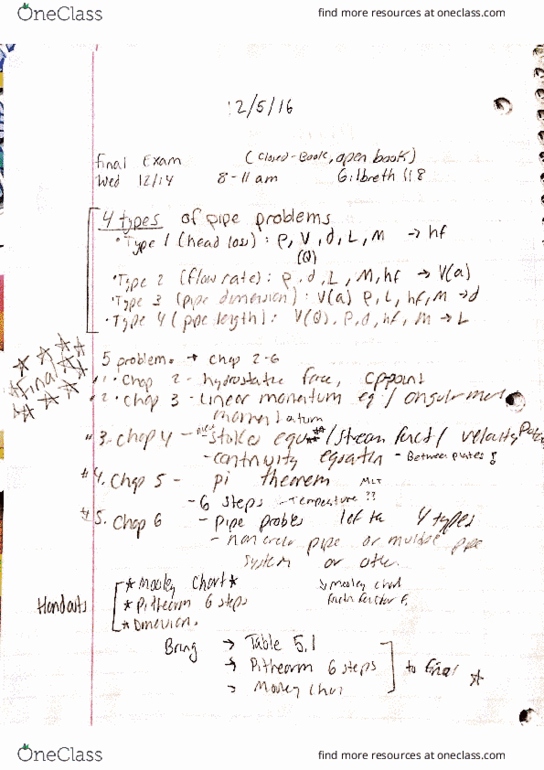 OneClass find more resources at oneclass.com
12/5/16
final Exam (Closed-Book, open book)
Wed 12/14 8-11 am Gilbreth 118
4 types of pipe problems
• Type 1 (head loss): ρ, V, d, L, M → hf
(Q)
• Type 2 (flow rate): ρ, d, L, M, hf → V(Q)
• Type 3 (pipe dimension): V(Q) ρ, L, hf, M → d
• Type 4 (pipe length): V(Q), ρ, d, hf, M → L
final
5 problems → Chap 2-6
#1. Chap 2 - hydrostatic force, cp point
#2. Chap 3 - Linear momentum eq /
#3. Chap 4 - stokes / stream funct / velocity
- continuity equation - Between plates
#4. Chap 5 - pi theorem MLT
- 6 steps - Temperature ??
#5. Chap 6 - pipe probles 4 types
- pipe or pipe
system or other
Handouts
* Mooley Chart *
* Pitheorm 6 steps
*
↳ mooley chart
factor f.
Bring → Table 5.1
→ Pitheorm 6 steps
→ Mooley Char
to final
OneClass find more resources at oneclass.com